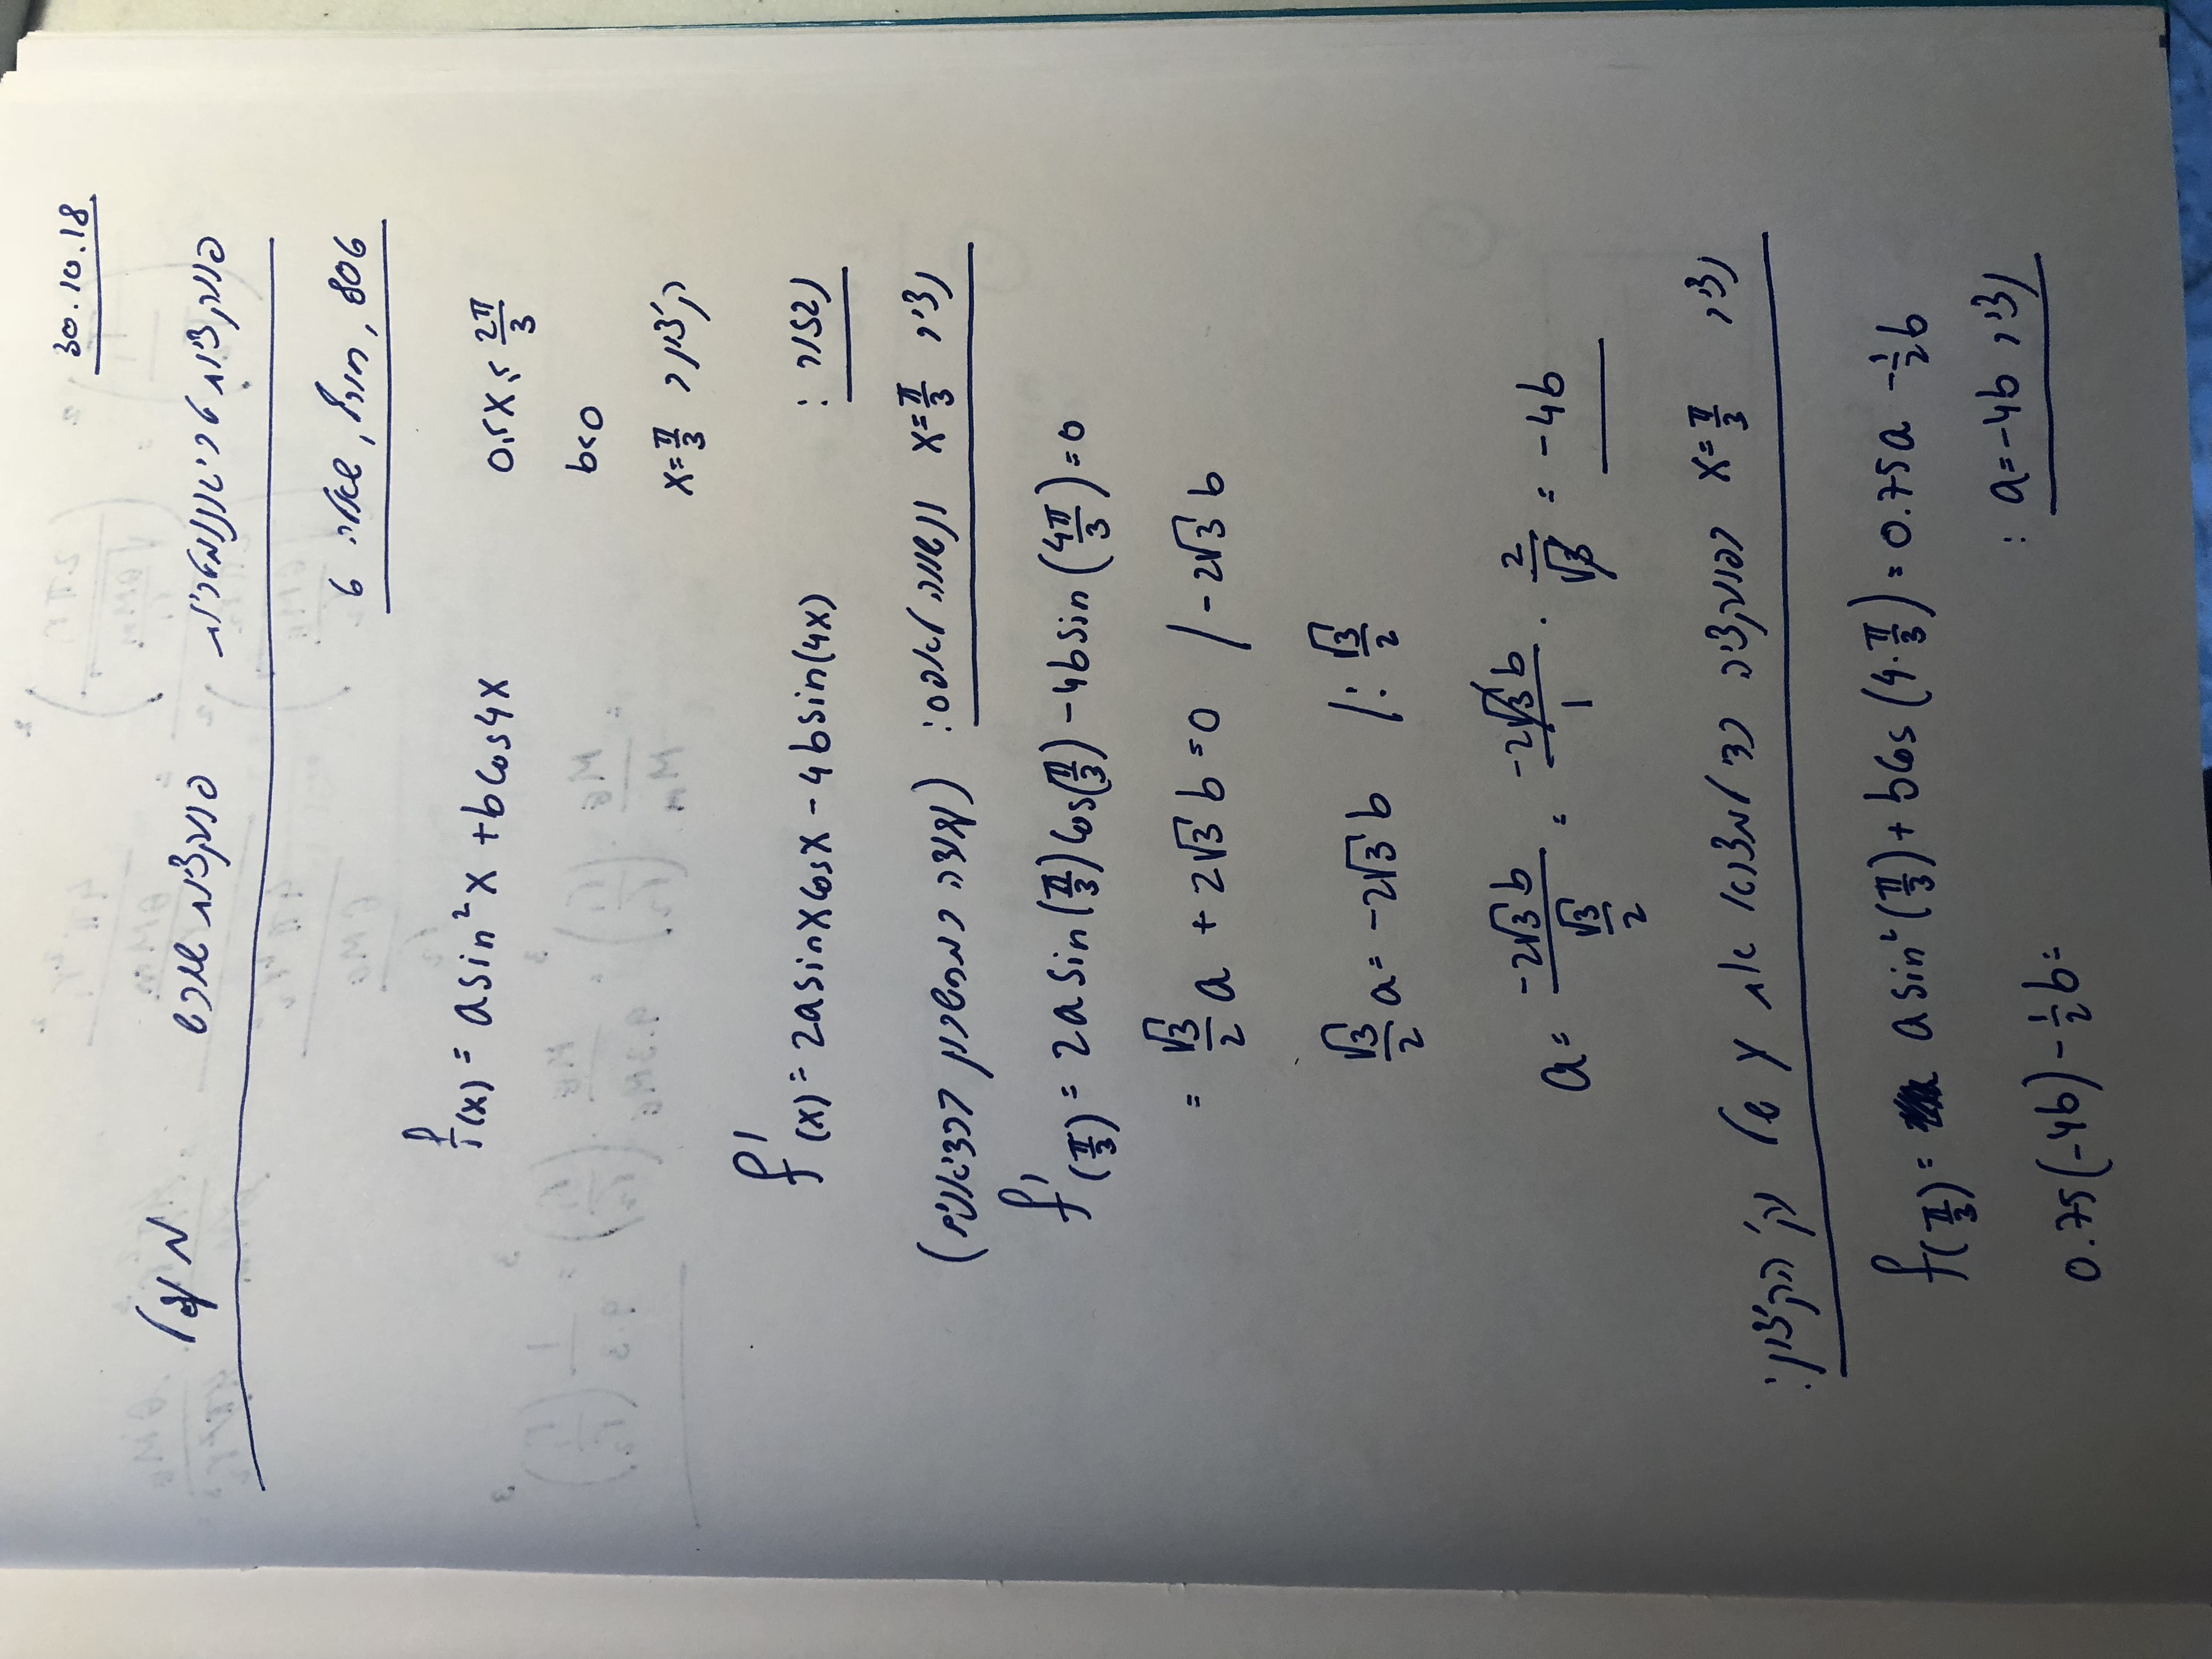 30.10.18
פונקציות טריגונומטריות פונקציות שורש מעגל
806, חורף, שאלה 6
f(x) = asin²x + bcos4x 0≤x≤2π/3
b<0
קיצון ב x=π/3
נגזור:
f'(x) = 2asinxcosx - 4bsin(4x)
נציב x=π/3 ונשווה לאפס: (נעבוד במחשבון ברדיאנים)
f'(π/3) = 2asin(π/3)cos(π/3) - 4bsin(4π/3) = 0
= √3/2 a + 2√3 b = 0 / -2√3 b
√3/2 a = -2√3 b /: √3/2
a = -2√3 b / (√3/2) = -2√3 b/1 · 2/√3 = -4b
נציב x=π/3 בפונקציה כדי למצוא את y של נק' הקיצון:
f(π/3) = asin²(π/3) + bcos(4·π/3) = 0.75a - ½b
נציב a=-4b :
0.75(-4b) - ½b =